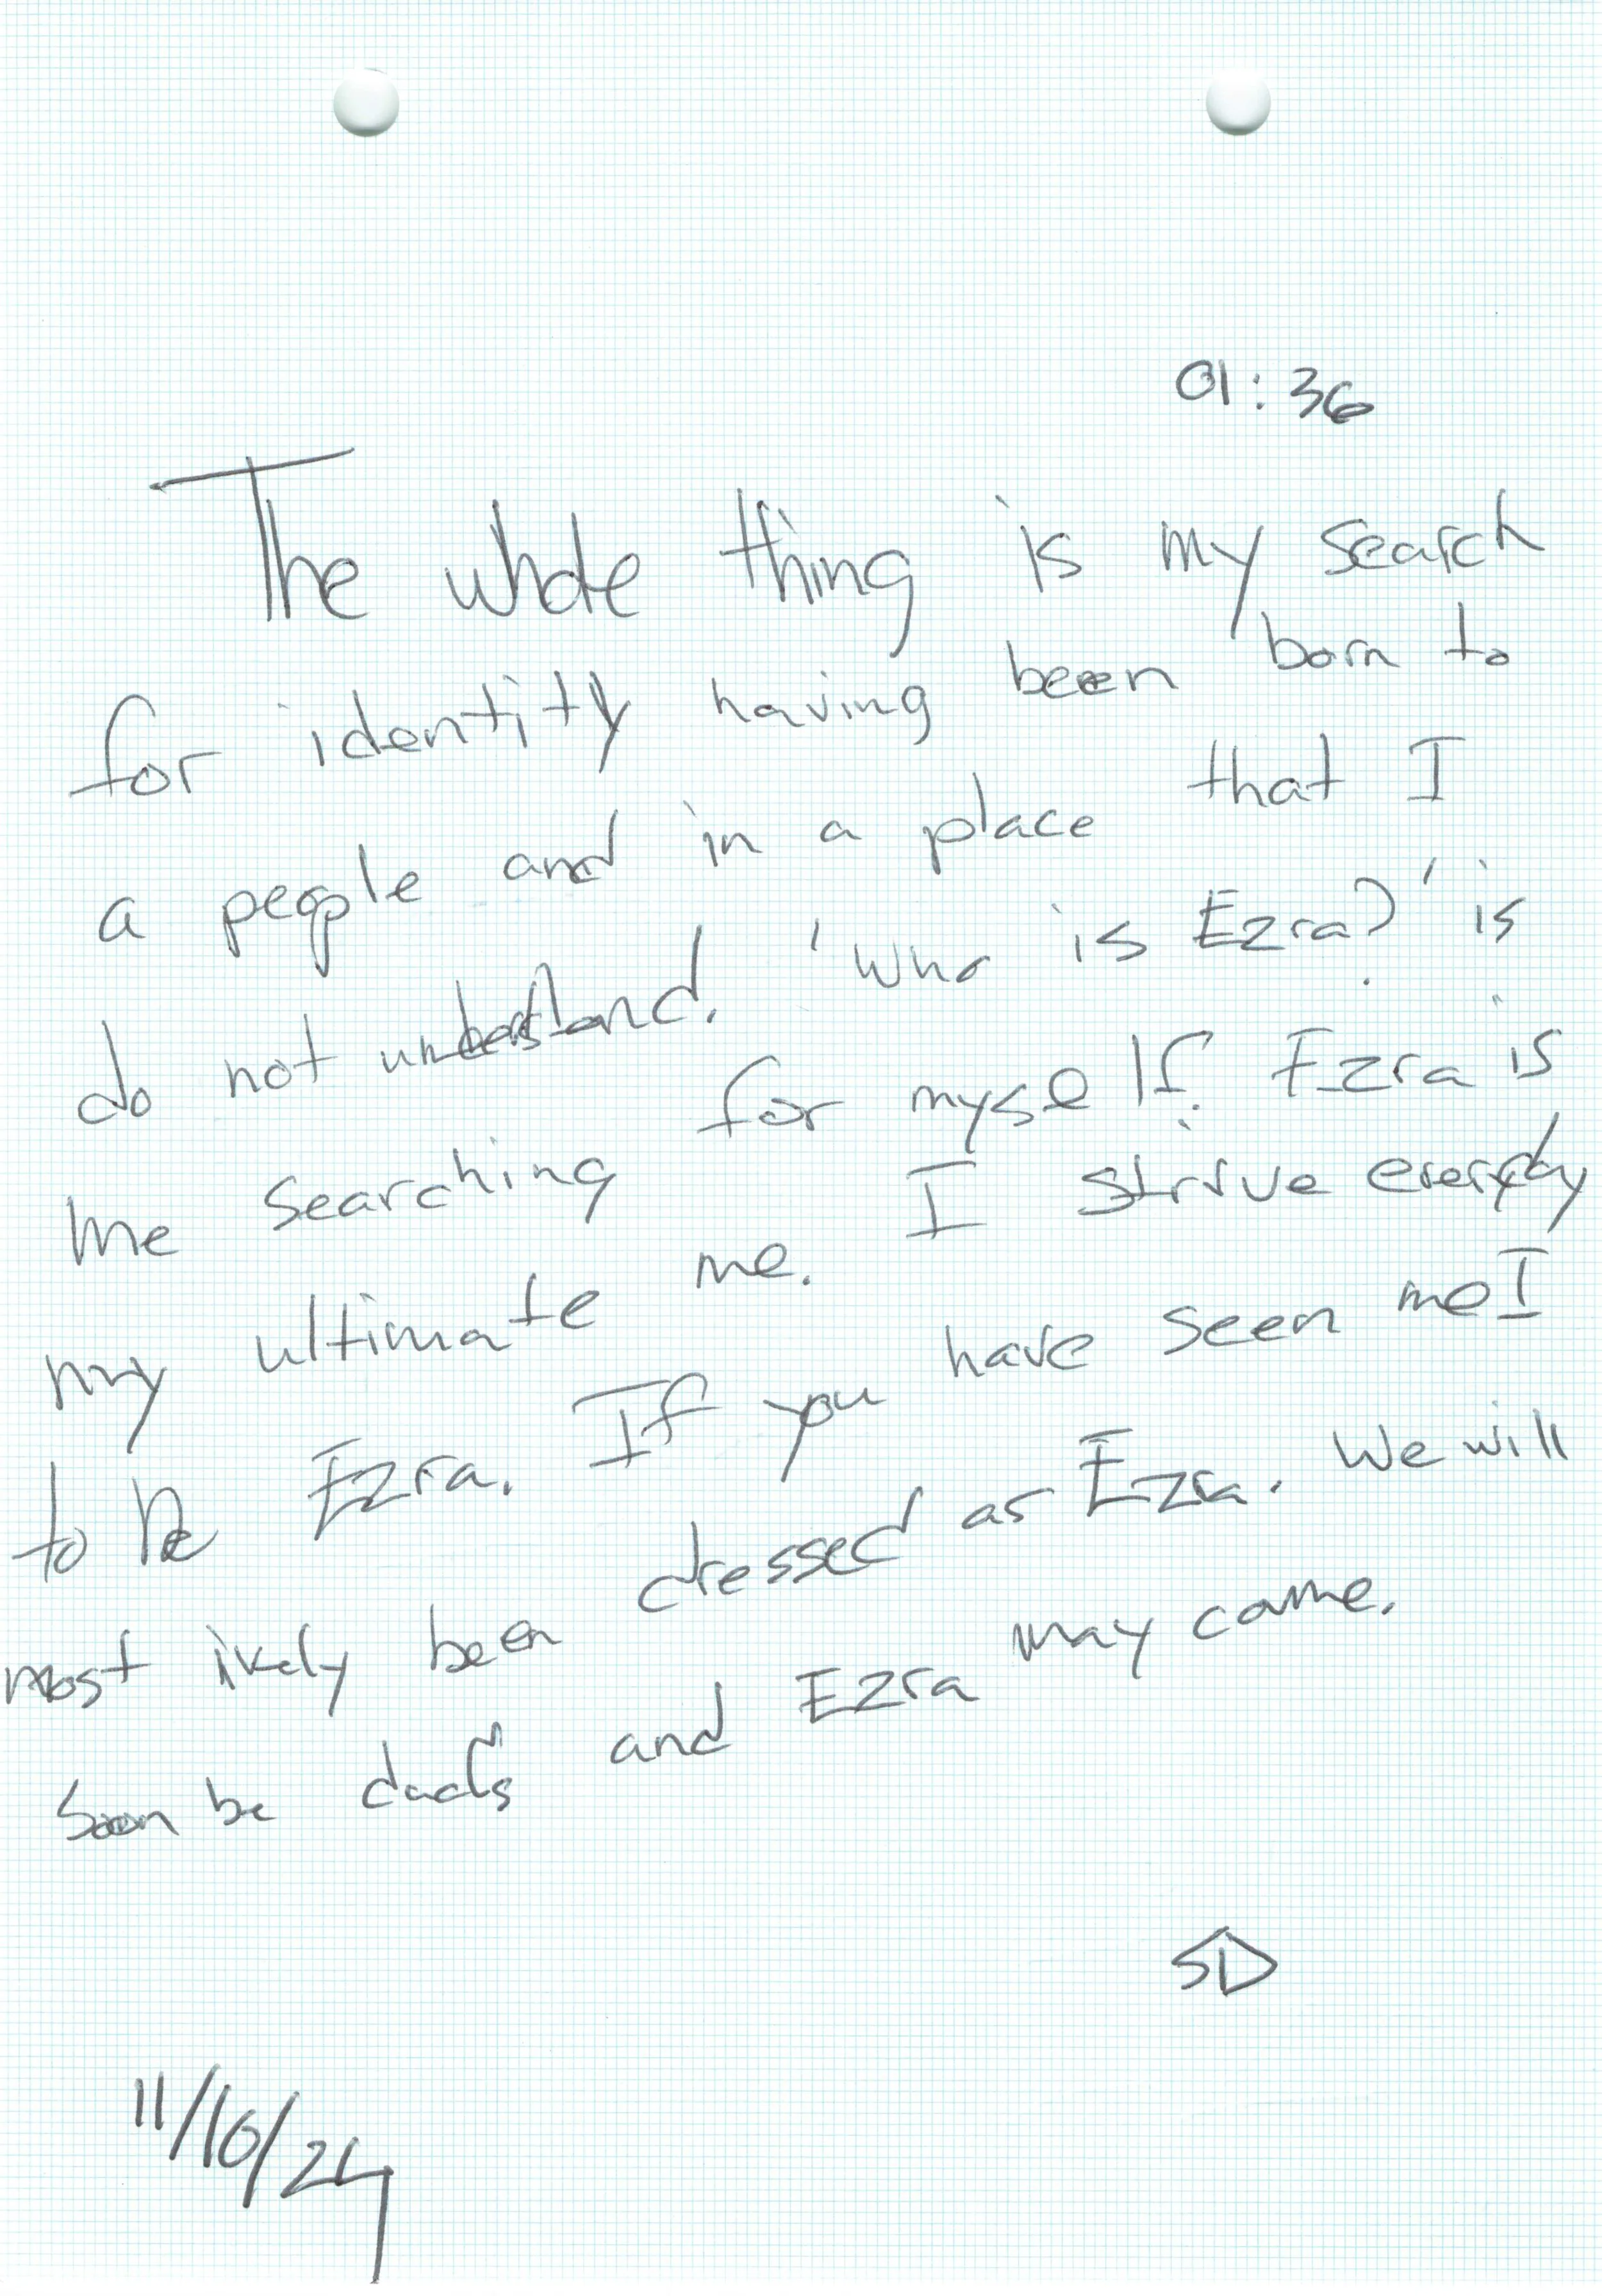 01:36
The whole thing is my search
for identity having been born to
a people and in a place that I
do not understand. 'Who is Ezra?' is
me searching for myself. Ezra is
my ultimate me. I strive everyday
to be Ezra. If you have seen me I
most ikely been dressed as Ezra. We will
soon be and Ezra may come.
SD
11/10/24